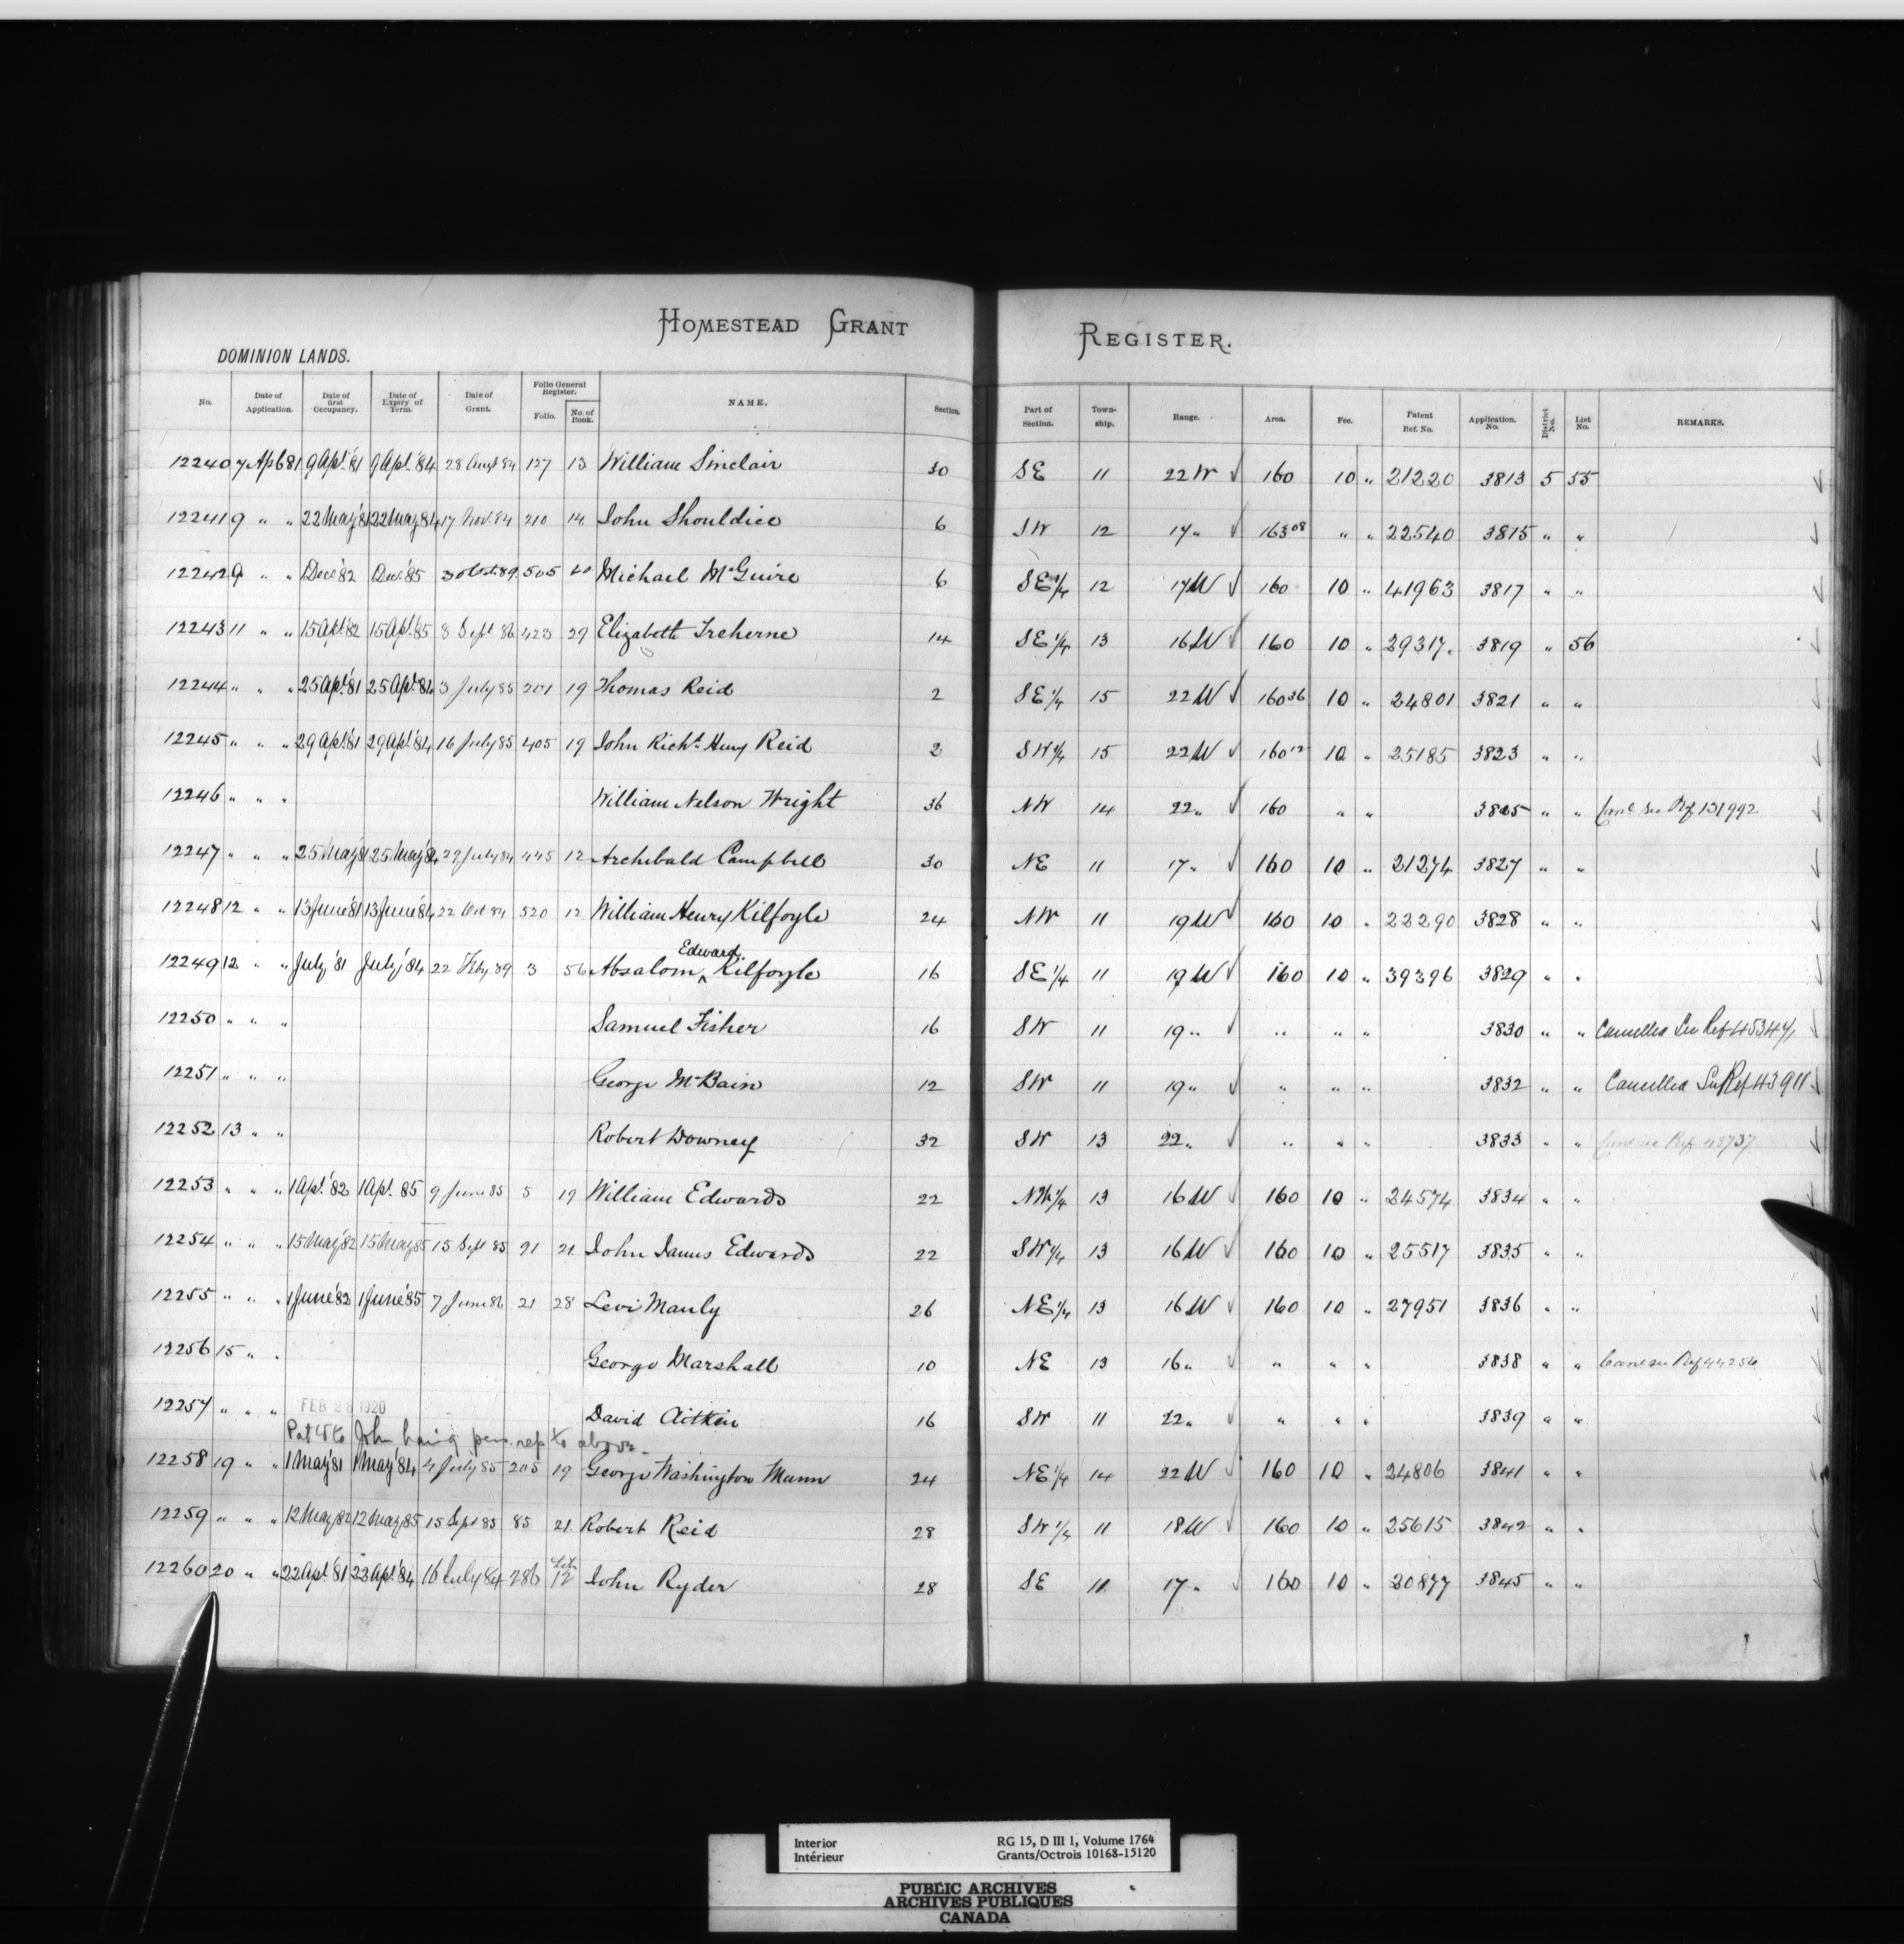 HOMESTEAD GRANT REGISTER.
DOMINION LANDS.
No. Date of Application. Date of first Occupancy. Date of Expiry of Term. Date of Grant. Folio General Register. Folio. No. of Book. NAME. Section. Part of Section. Town-ship. Range. Area. Fee. Patent Ref. No. Application. No. District No. List No. REMARKS.
12240 7 Apl 81 9 Apl. '81 9 Apl. '84 28 Augt 84 127 13 William Sinclair 30 SE 11 22 W ✓ 160 10 " 21220 3813 5 55
12241 9 " " 22 May '81 22 May 84 17 Nov. 84 210 14 John Shouldice 6 SW 12 17 " ✓ 163 08 " " 22540 3815 " "
12242 9 " " Dec. '82 Dec. '85 3 Oct. 89 505 40 Michael McGuire 6 SE 1/4 12 17 W ✓ 160 10 " 41963 3817 " "
12243 11 " " 15 Apl. '82 15 Apl. '85 8 Sept 86 423 29 Elizabeth Treherne 14 SE 1/4 13 16 W ✓ 160 10 " 29317. 3819 " 56
12244 " " " 25 Apl. '81 25 Apl. '84 3 July 85 201 19 Thomas Reid 2 SE 1/4 15 22 W ✓ 160 36 10 " 24801 3821 " "
12245 " " " 29 Apl. '81 29 Apl. '84 16 July 85 405 19 John Richt. Henry Reid 2 SW 1/4 15 22 W ✓ 160 12 10 " 25185 3823 " "
12246 " " " William Nelson Wright 36 NW 14 22 " ✓ 160 " " 3825 " " Canc see Ref 131992
12247 " " " 25 May '81 25 May '84 29 July 84 445 12 Archibald Campbell 30 NE 11 17 " ✓ 160 10 " 21274 3827 " "
12248 12 " " 13 June '81 13 June '84 22 Oct 84 520 12 William Henry Kilfoyle 24 NW 11 19 W ✓ 160 10 " 22290 3828 " "
12249 12 " " July '81 July '84 22 Feby 89 3 56 Absalom ^ Edward Kilfoyle 16 SE 1/4 11 19 W ✓ 160 10 " 39396 3829 " "
12250 " " " Samuel Fisher 16 SW 11 19 " ✓ " " " 3830 " " Cancelled See Ref 45347
12251 " " " George McBain 12 SW 11 19 " ✓ " " " 3832 " " Cancelled See Ref 43911
12252 13 " " Robert Downey 32 SW 13 22 " ✓ " " " 3833 " " Canc see Ref 48737
12253 " " " 1 Apl. '82 1 Apl. 85 9 June 85 5 19 William Edwards 22 NW 1/4 13 16 W ✓ 160 10 " 24574 3834 " "
12254 " " " 15 May '82 15 May 85 15 Sept 85 91 21 John James Edwards 22 SW 1/4 13 16 W ✓ 160 10 " 25517 3835 " "
12255 " " " 1 June '82 1 June '85 7 June 86 21 28 Levi Manly 26 NE 1/4 13 16 W ✓ 160 10 " 27951 3836 " "
12256 15 " " George Marshall 10 NE 13 16 " ✓ " " " 3838 " " Canc see Ref 44256
12257 " " " FEB 28 1920 David Aitkin 16 SW 11 22 " ✓ " " " 3839 " "
to John being pers. rep to above
12258 19 " " 1 May '81 1 May '84 4 July 85 205 19 George Washington Munn 24 NE 1/4 14 22 W ✓ 160 10 " 24806 3841 " "
12259 " " " 12 May '82 12 May '85 15 Sept 85 85 21 Robert Reid 28 SW 1/4 11 18 W ✓ 160 10 " 25615 3842 " "
12260 20 " " 22 Apl. '81 22 Apl. '84 16 July 84 286 12 John Ryder 28 SE 11 17 " ✓ 160 10 " 20877 3845 " "
Interior RG 15, D III 1, Volume 1764
Intérieur Grants/Octrois 10168-15120
PUBLIC ARCHIVES
ARCHIVES PUBLIQUES
CANADA